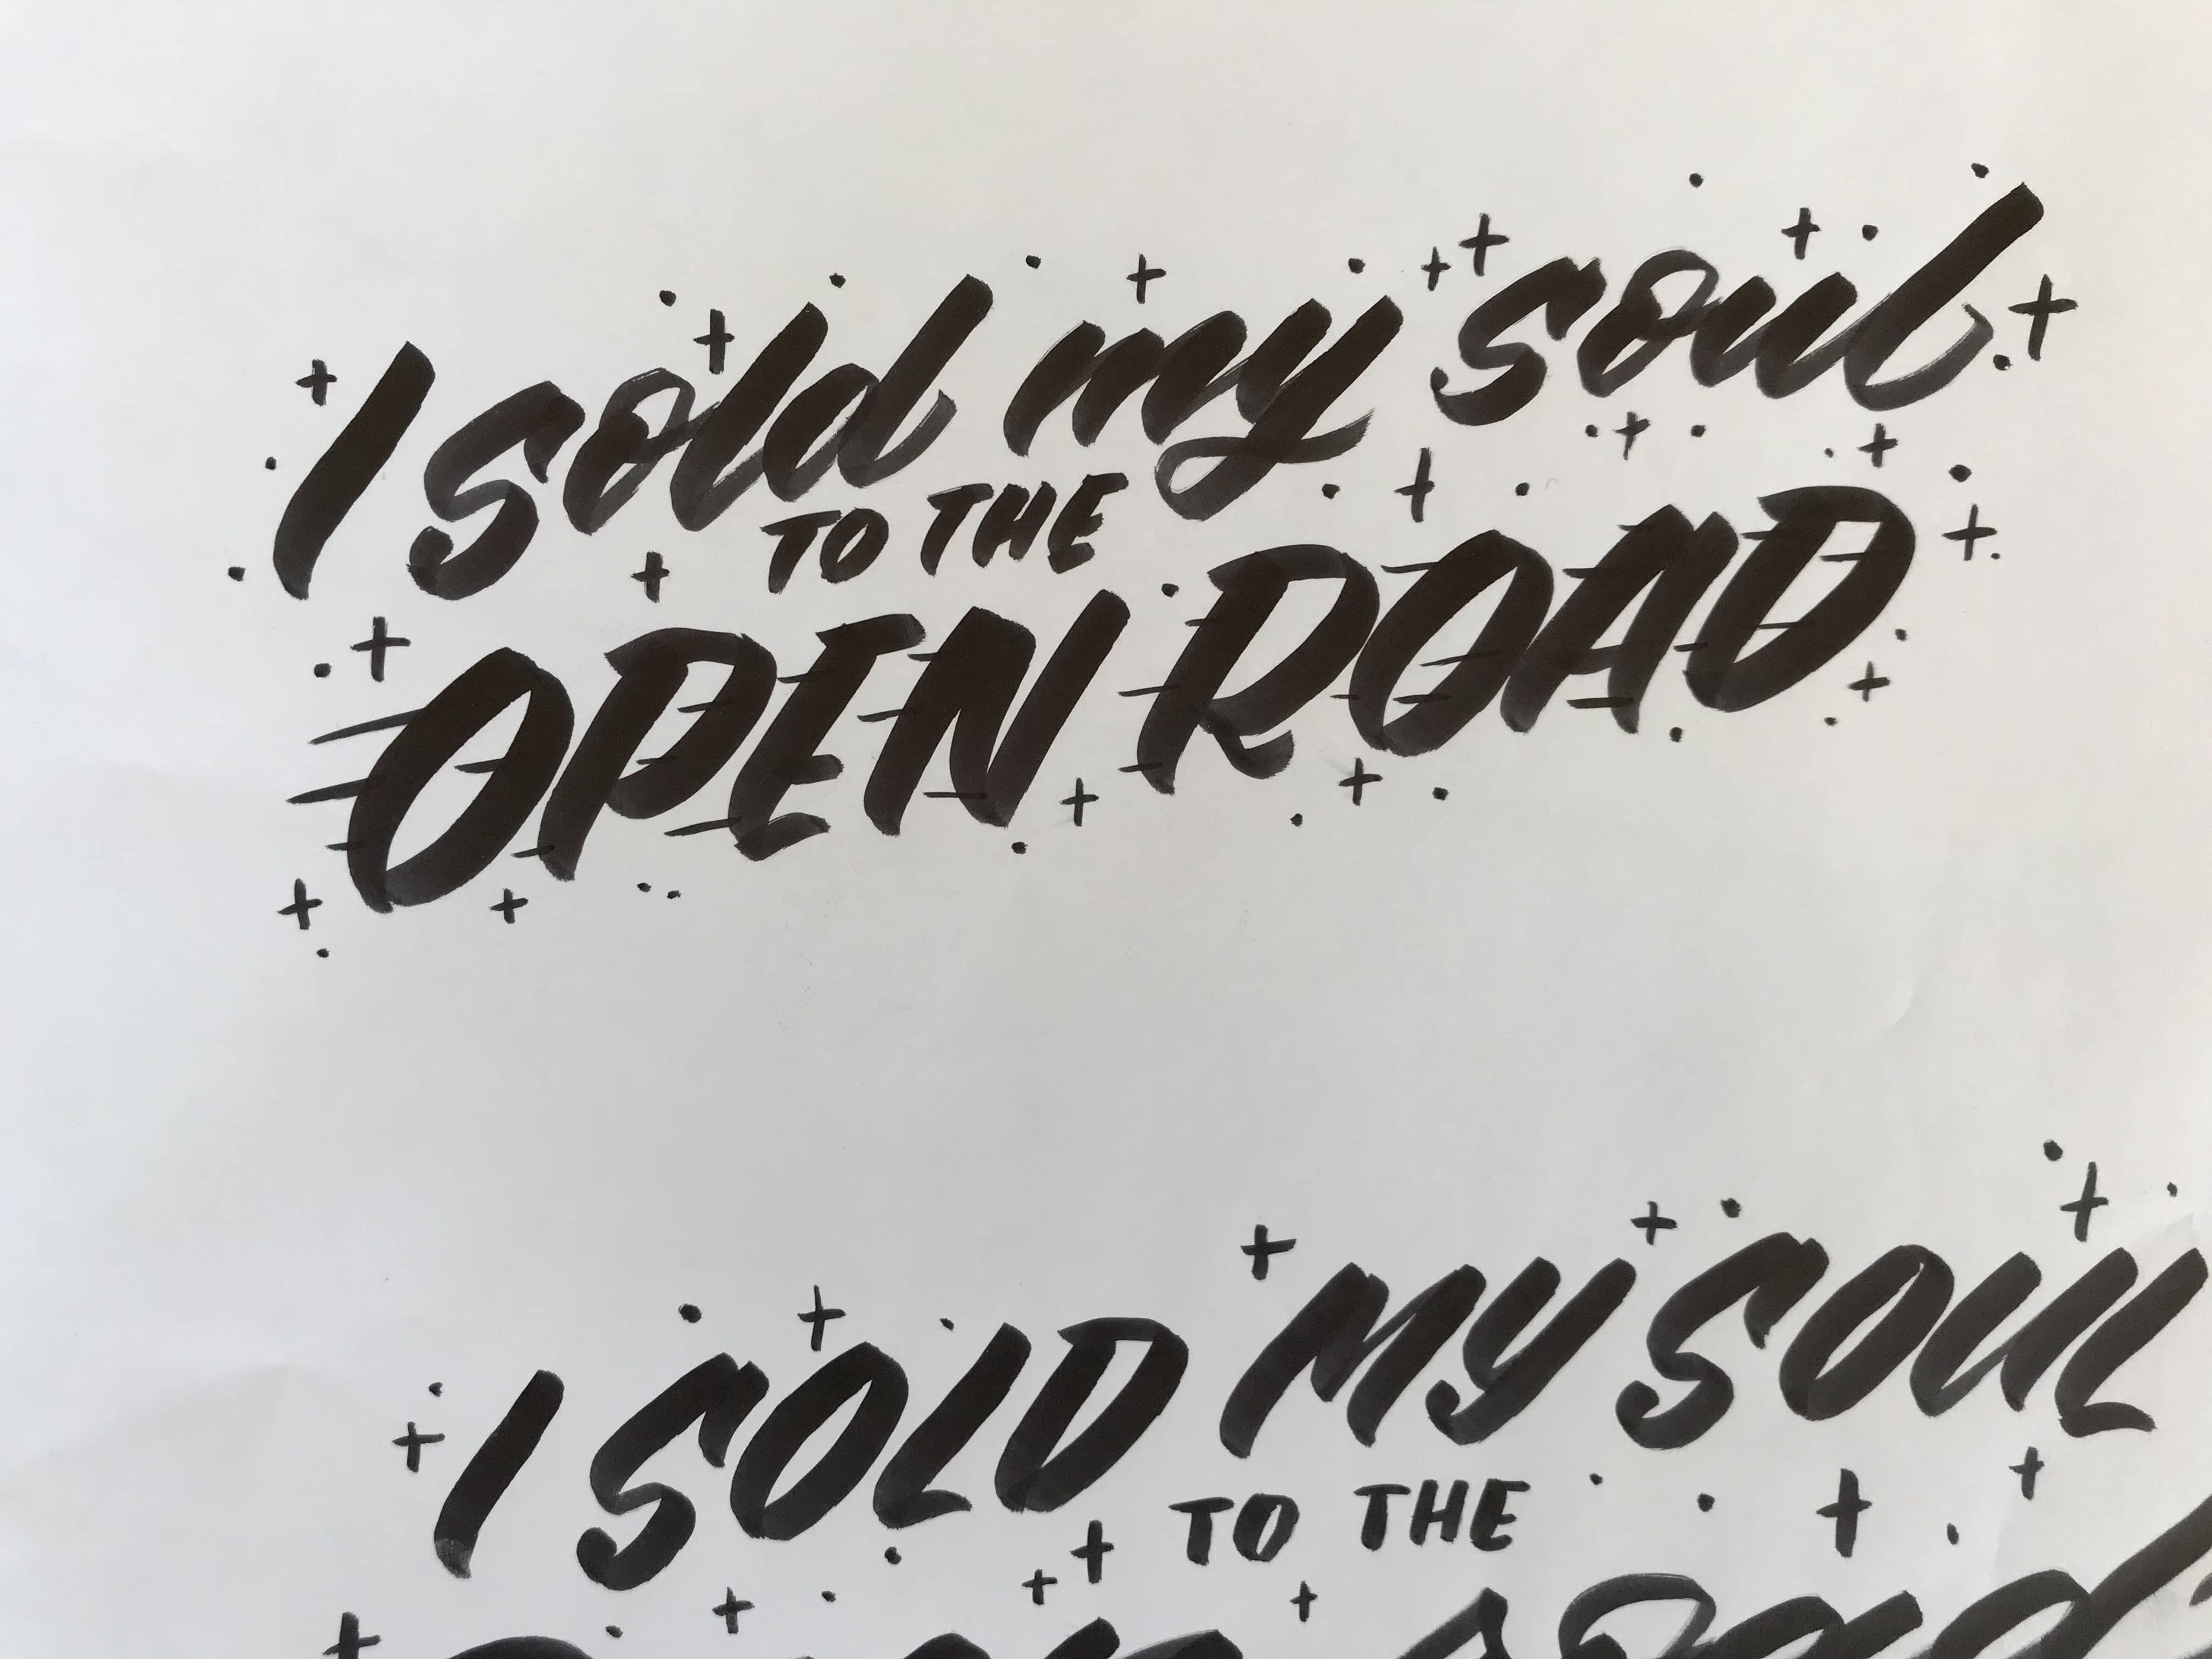 I sold my soul
TO THE
OPEN ROAD
I SOLD MY SOUL
TO THE